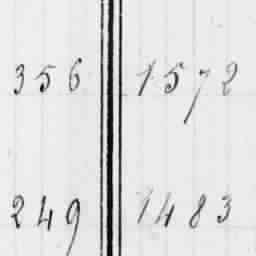 356 1572
249 1483